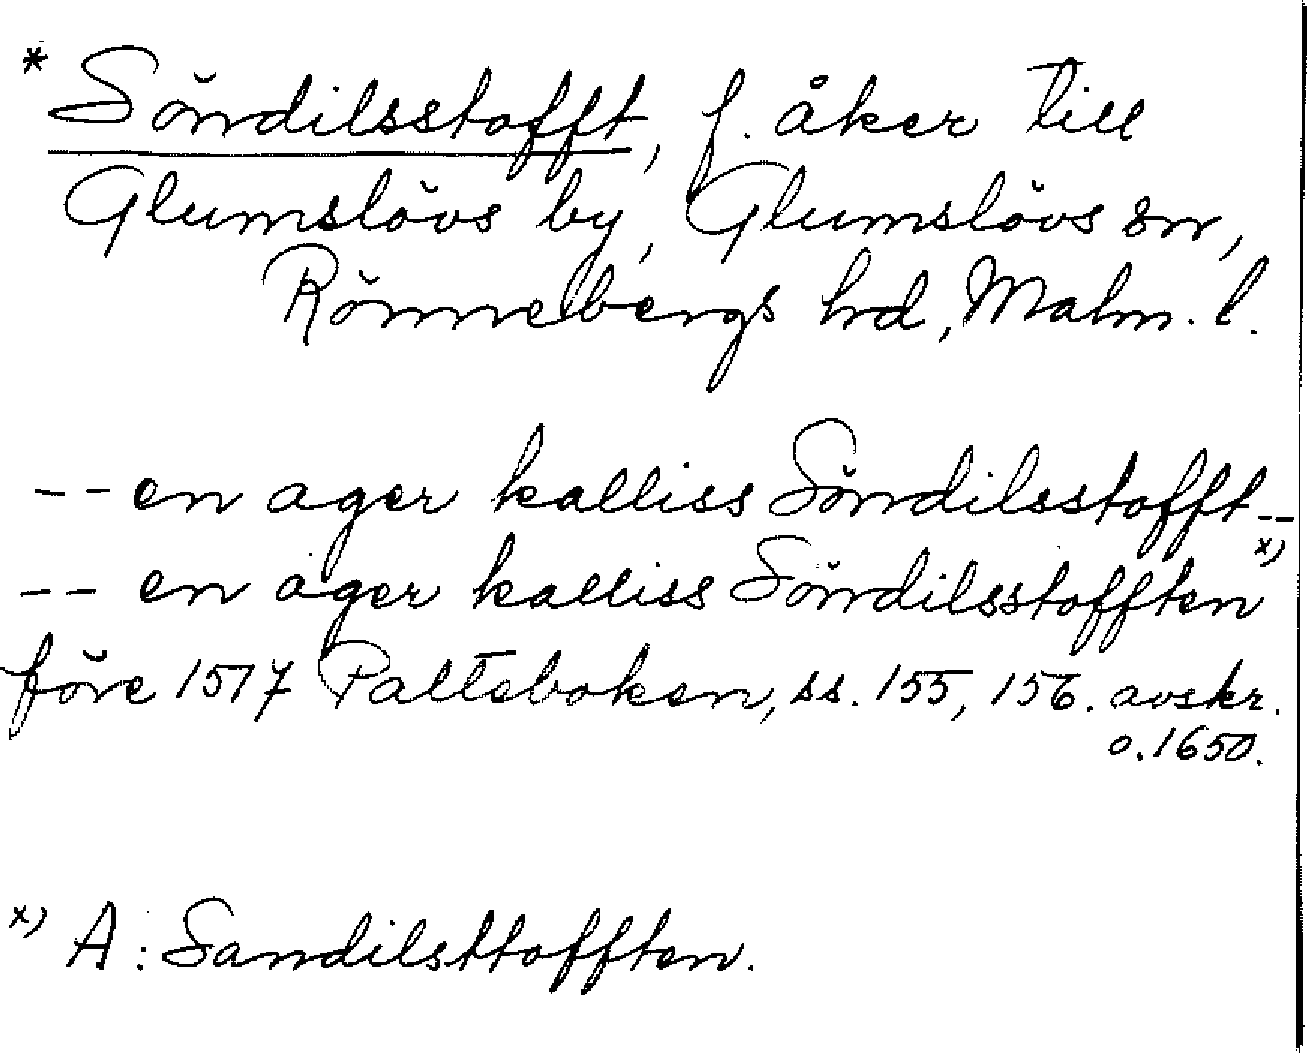 * Söndilsstofft, f. åker till
Glumslövs by, Glumslövs sn,
Rönnebergs hd, Malm. l.
-- en ager kalliss Söndilsstofft --
-- en ager kalliss Söndilsstofften x)
före 1517 Palteboken, ss. 155, 156. avskr.
o. 1650.
x) A: Sandilsttofften.